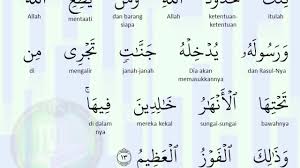 تِلْكَ حُدُودُ ٱللَّهِ وَمَن يُطِعِ ٱللَّهَ
Allah mentaati dan barang siapa Allah ketentuan-ketentuan itulah
وَرَسُولَهُۥ يُدْخِلْهُ جَنَّٰتٍ تَجْرِى مِن
di mengalir janah-janah Dia akan memasukkannya dan Rasul-Nya
تَحْتِهَا ٱلْأَنْهَٰرُ خَٰلِدِينَ فِيهَا ۚ
di dalam nya mereka kekal sungai-sungai bawahnya
وَذَٰلِكَ ٱلْفَوْزُ ٱلْعَظِيمُ ١٣